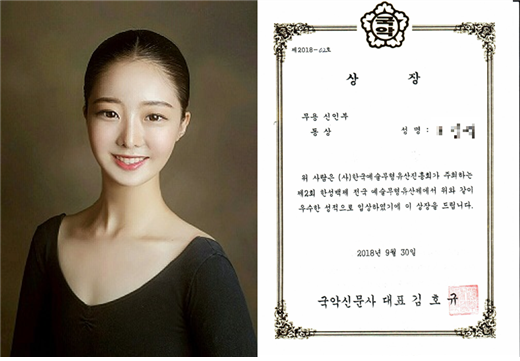 국악
제2018-02호
상 장
무용 신인부
동상 성명 :
위 사람은 (사)한국예술무형유산진흥회가 주최하는
제2회 한성백제 전국 예술무형유산제에서 위와 같이
우수한 성적으로 입상하였기에 이 상장을 드립니다.
2018년 9월 30일
국악신문사 대표 김호규